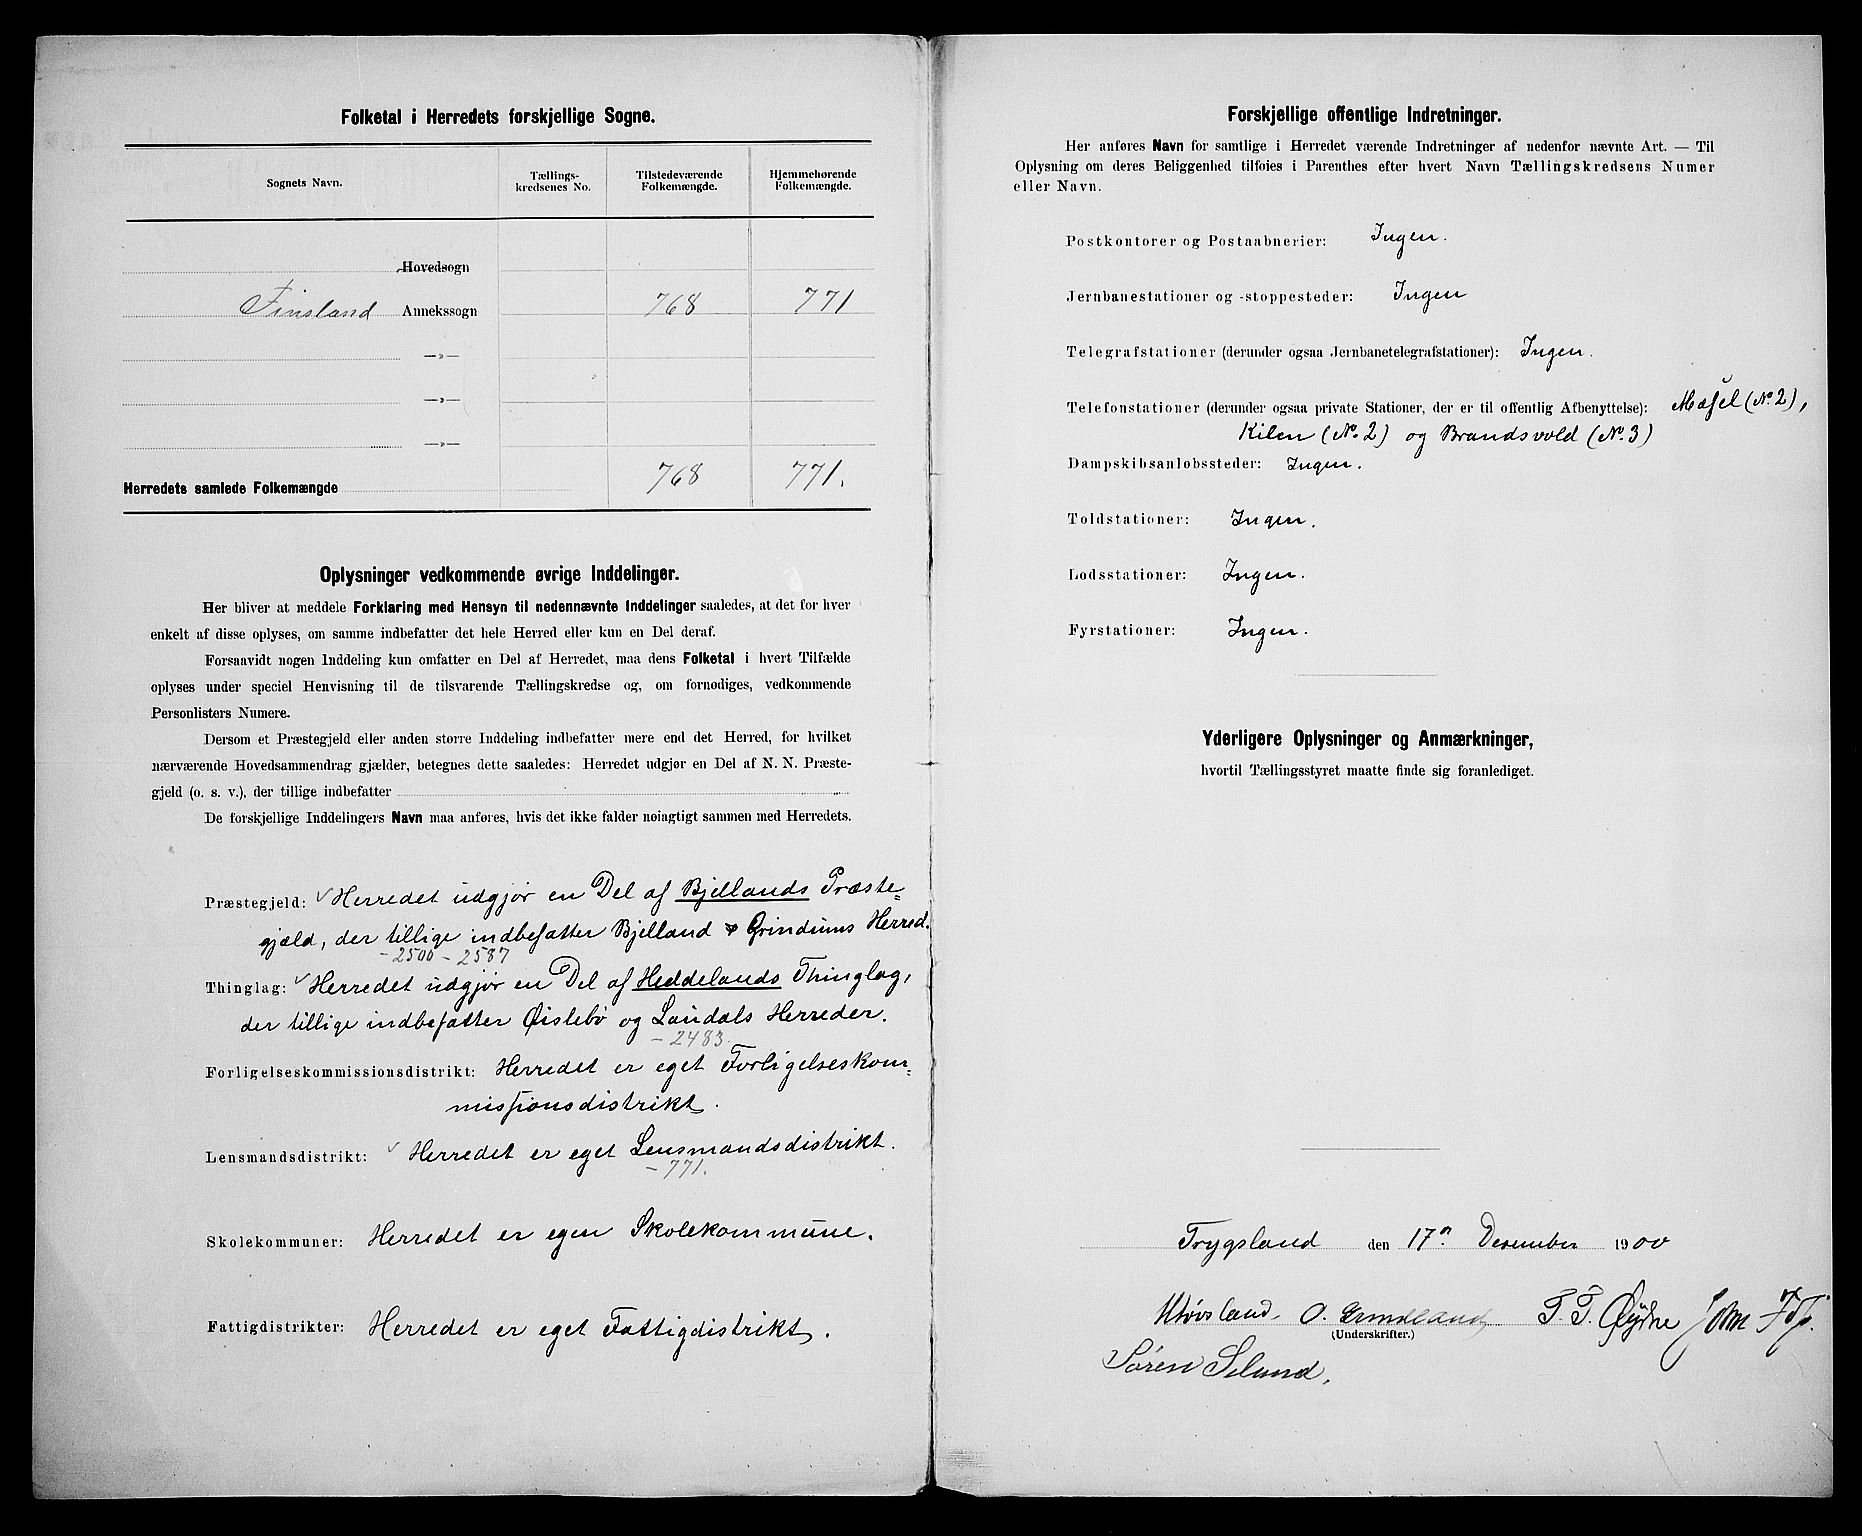 Folketal i Herredets forskjellige Sogne.
Sognets Navn. Tællingskredsenes No. Tilstedeværende Folkemængde. Hjemmehørende Folkemængde.
Hovedsogn
Finsland Annekssogn 768 771
—»—
—»—
—»—
Herredets samlede Folkemængde 768 771.
Oplysninger vedkommende øvrige Inddelinger.
Her bliver at meddele Forklaring med Hensyn til nedennævnte Inddelinger saaledes, at det for hver
enkelt af disse oplyses, om samme indbefatter det hele Herred eller kun en Del deraf.
Forsaavidt nogen Inddeling kun omfatter en Del af Herredet, maa dens Folketal i hvert Tilfælde
oplyses under speciel Henvisning til de tilsvarende Tællingskredse og, om fornødiges, vedkommende
Personlisters Numere.
Dersom et Præstegjeld eller anden større Inddeling indbefatter mere end det Herred, for hvilket
nærværende Hovedsammendrag gjælder, betegnes dette saaledes: Herredet udgjør en Del af N. N. Præste-
gjeld (o. s. v.), der tillige indbefatter
De forskjellige Inddelingers Navn maa anføres, hvis det ikke falder nøiagtigt sammen med Herredets.
Præstegjeld: ✓ Herredet udgjør en Del af Bjellands Præste=
gjæld, der tillige indbefatter Bjelland & Grindums Herred.
- 2500 - 2587
Thinglag: ✓ Herredet udgjør en Del af Heddelands Thinglag,
der tillige indbefatter Øislebø og Laudals Herreder.
- 2483.
Forligelseskommissionsdistrikt: Herredet er eget Forligelseskom=
missionsdistrikt.
Lensmandsdistrikt: ✓ Herredet er eget Lensmandsdistrikt.
- 771.
Skolekommuner: Herredet er egen Skolekommune.
Fattigdistrikter: Herredet er eget Fattigdistrikt.
Forskjellige offentlige Indretninger.
Her anføres Navn for samtlige i Herredet værende Indretninger af nedenfor nævnte Art. — Til
Oplysning om deres Beliggenhed tilføies i Parenthes efter hvert Navn Tællingskredsens Numer
eller Navn.
Postkontorer og Postaabnerier: Ingen.
Jernbanestationer og -stoppesteder: Ingen
Telegrafstationer (derunder ogsaa Jernbanetelegrafstationer): Ingen.
Telefonstationer (derunder ogsaa private Stationer, der er til offentlig Afbenyttelse): (No. 2),
Kilen (No. 2) og Brandsvold (No. 3)
Dampskibsanløbssteder: Ingen.
Toldstationer: Ingen.
Lodsstationer: Ingen.
Fyrstationer: Ingen.
Yderligere Oplysninger og Anmærkninger,
hvortil Tællingsstyret maatte finde sig foranlediget.
Trygsland den 17n Desember 1900
O. T. T. Øydne John
(Underskrifter.)
Søren Selund.